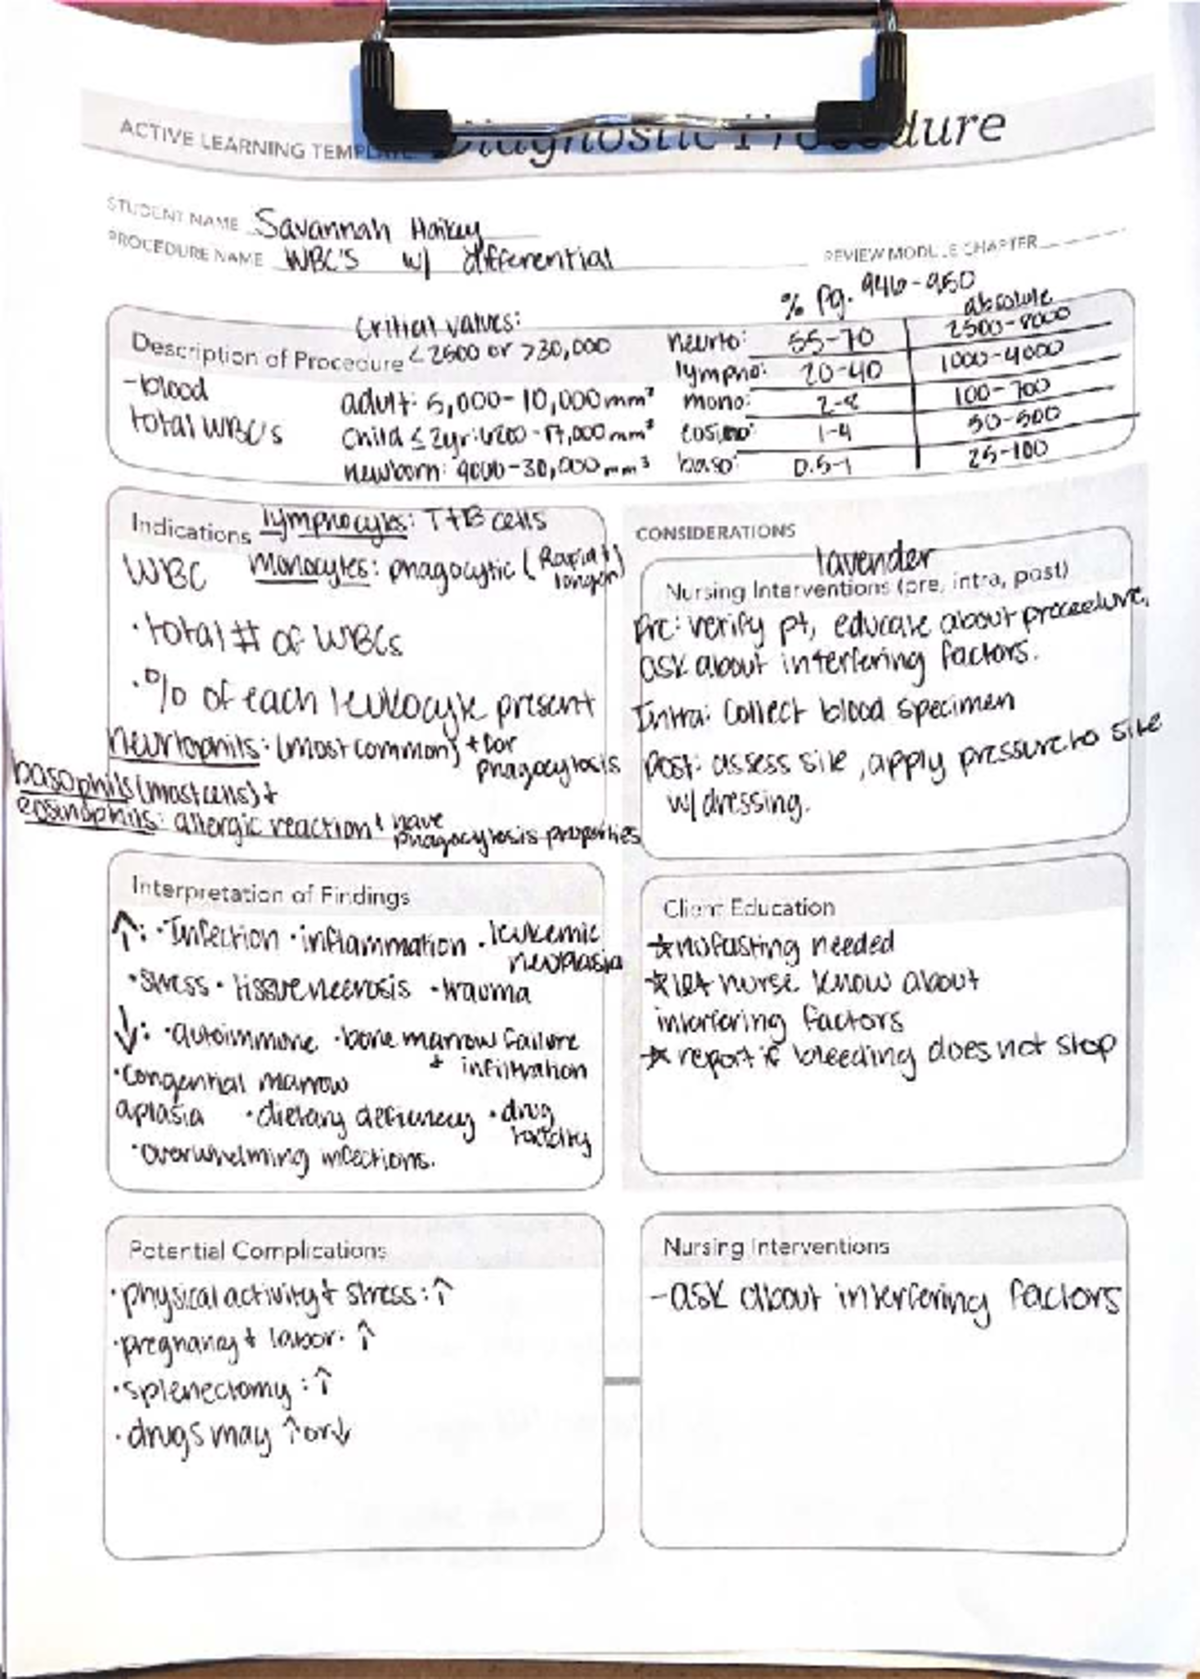 ACTIVE LEARNING TEMPLATE: Diagnostic Procedure
STUDENT NAME Savannah
PROCEDURE NAME WBC's w/ differential
REVIEW MODULE CHAPTER
% Pg. 946-950 absolute
Critial values:
Description of Procedure < 2500 or >30,000
-blood
total WBC's
adult: 5,000-10,000mm³
Child ≤ 2yr: 6200-17,000mm³
newborn: 9000-30,000mm³
neurto: 55-70 2500-8000
lympho: 20-40 1000-4000
mono: 2-8 100-700
eosino: 1-4 50-500
baso: 0.5-1 25-100
Indications lymphocytes: T+B cells
WBC Monocytes: phagocytic (Rapid + longer)
·total # of WBCs
·% of each leukocyte present
neurtophils: (most common) + for
phagocytosis
basophils (mast cells) +
eosinophils: allergic reaction + have
phagocytosis properties
CONSIDERATIONS
lavender
Nursing Interventions (pre, intra, post)
Pre: verify pt, educate about procedure,
ask about interfering factors.
Intra: Collect blood specimen
Post: assess site, apply pressure to site
w/ dressing.
Interpretation of Findings
↑: ·Infection ·inflammation ·leukemic
neoplasia
·stress ·tissue necrosis ·trauma
↓: ·autoimmune ·bone marrow failure
+ infiltration
·Congential marrow
aplasia ·dietary deficiency ·drug
toxicity
·Overwhelming infections.
Client Education
☆ no fasting needed
☆ let nurse know about
interfering factors
☆ report if bleeding does not stop
Potential Complications
·physical activity + stress: ↑
·pregnancy + labor: ↑
·splenectomy: ↑
·drugs may ↑ or ↓
Nursing Interventions
-ask about interfering factors